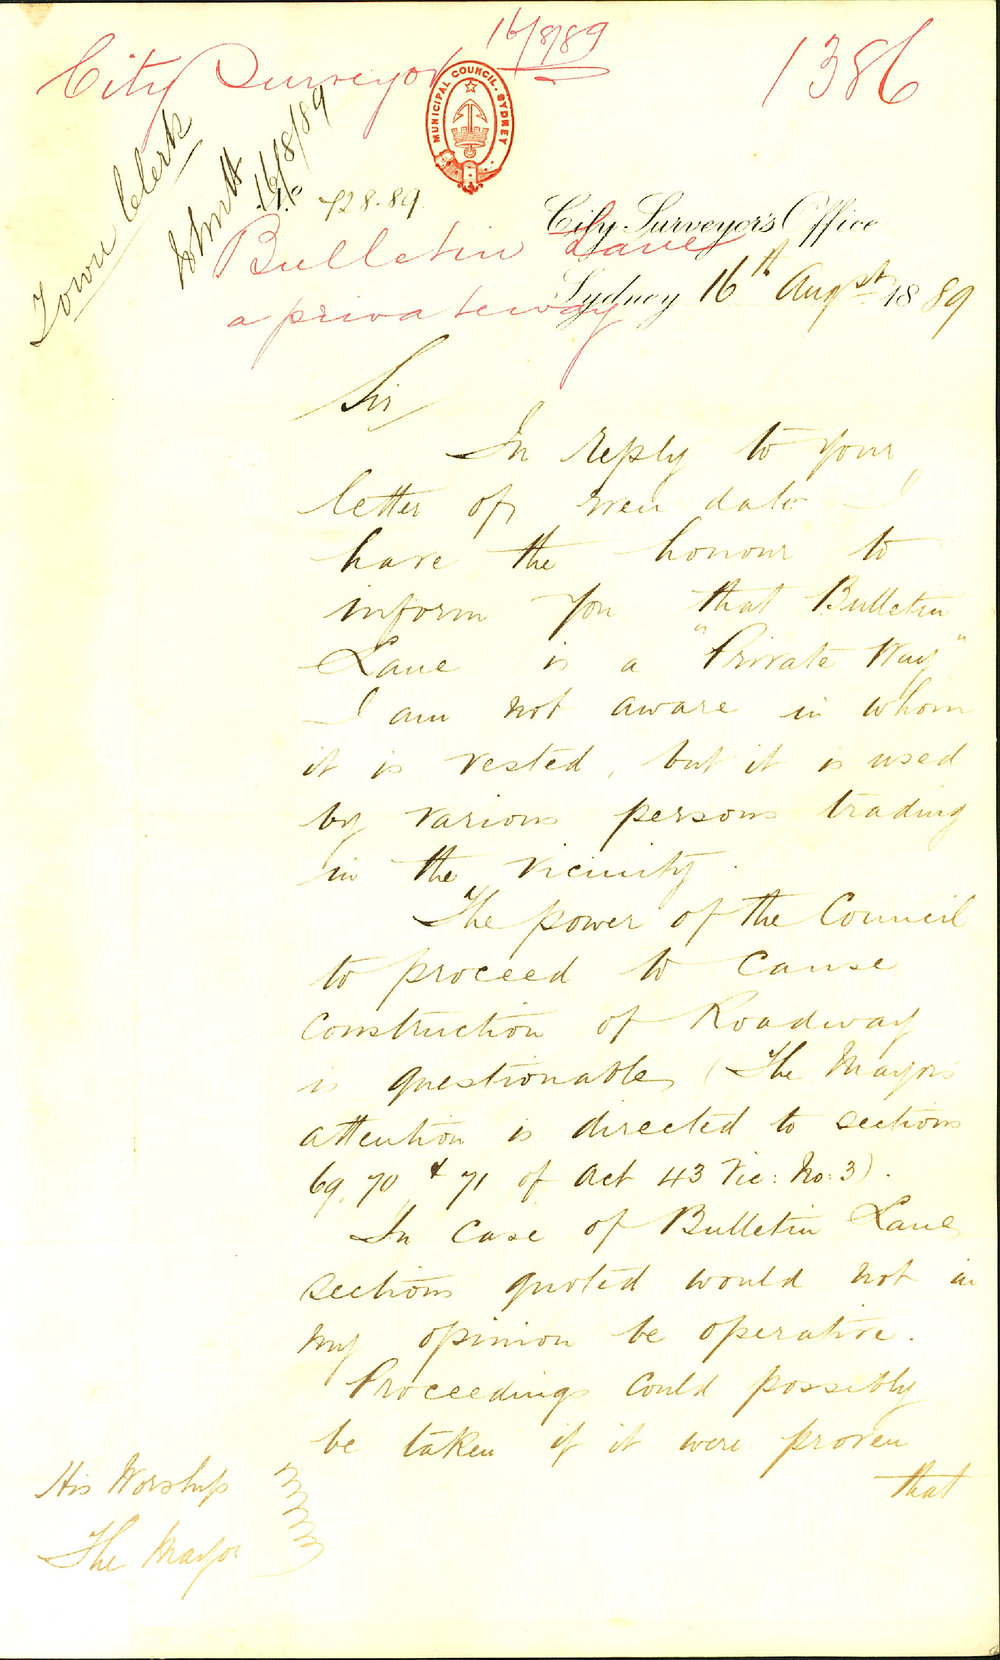 City Surveyor 16/8/89
1386
MUNICIPAL COUNCIL. SYDNEY
Town Clerk
16/8/89
728.89.
City Surveyor's Office
Bulletin Lane
a private way
Sydney 16th Augst 1889
Sir
In reply to your
letter of even date I
have the honour to
inform you that Bulletin
Lane is a "Private Way"
I am not aware in whom
it is vested, but it is used
by various persons trading
in the vicinity.
The power of the Council
to proceed to cause
construction of Roadway
is questionable, (The Mayors
attention is directed to sections
69, 70 & 71 of Act 43 Vic: No: 3).
In case of Bulletin Lane
sections quoted would not in
my opinion be operative.
Proceedings could possibly
be taken if it were proven
that
His Worship
The Mayor